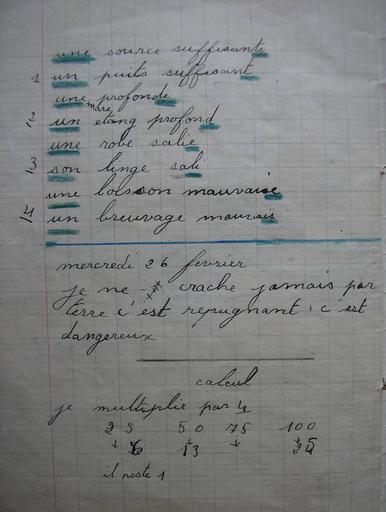 une source suffisante
1 un puits suffisant
une mare profonde
2 un etang profond
une robe salie
3 son linge sali
une boisson mauvaise
4 un breuvage mauvais
mercredi 26 fevrier
je ne crache jamais par
terre c'est repugnant. c est
dangereux
calcul
je multiplie par 4
25 50 75 100
6 13 25
il reste 1